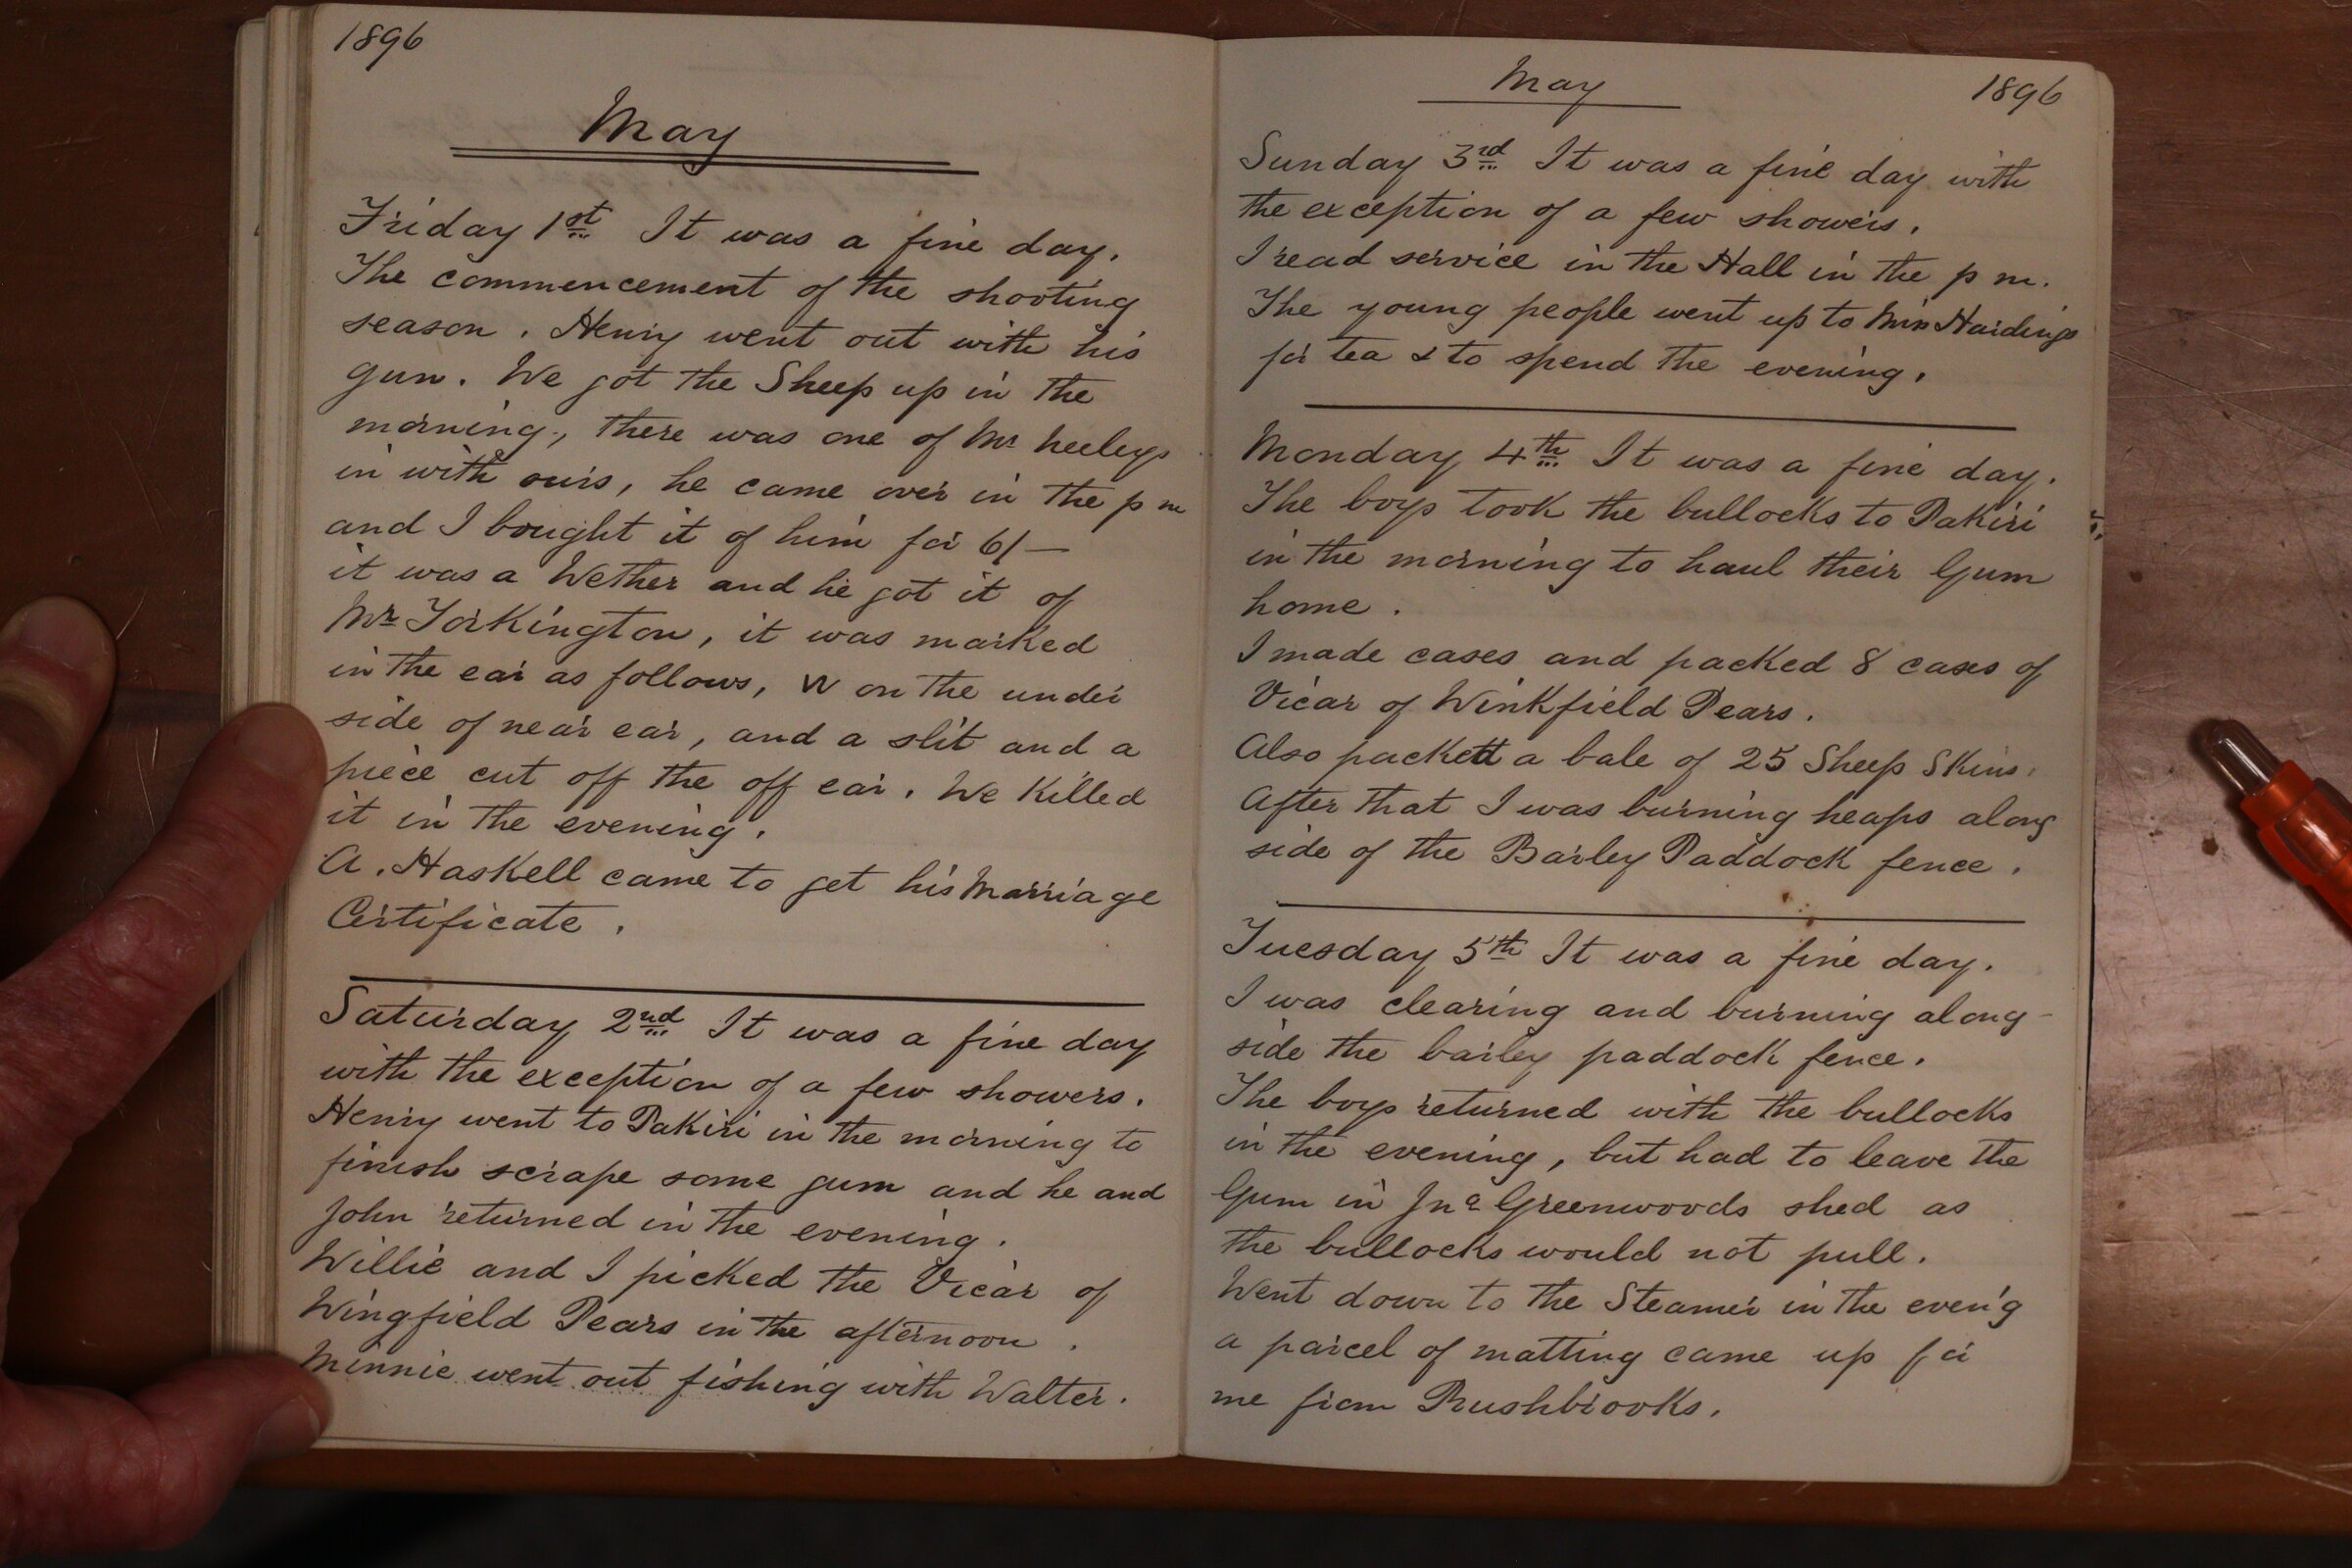 1896
May
Friday 1st It was a fine day.
The commencement of the shooting
season. Henry went out with his
gun. We got the Sheep up in the
morning, there was one of Mr Neeleys
in with ours, he came over in the p m
and I bought it of him for 6/-
it was a Wether and he got it of
Mr Torkington, it was marked
in the ear as follows, W on the under
side of near ear, and a slit and a
piece cut off the off ear. We Killed
it in the evening.
A. Haskell came to get his Marriage
Certificate.
Saturday 2nd It was a fine day
with the exception of a few showers.
Henry went to Pakiri in the morning to
finish scrape some gum and he and
John returned in the evening.
Willie and I picked the Vicar of
Wingfield Pears in the afternoon.
Minnie went out fishing with Walter.
May
1896
Sunday 3rd It was a fine day with
the exception of a few showers.
I read service in the Hall in the p m.
The young people went up to Miss Hardings
for tea & to spend the evening.
Monday 4th It was a fine day.
The boys took the bullocks to Pakiri
in the morning to haul their Gum
home.
I made cases and packed 8 cases of
Vicar of Winkfield Pears.
Also packett a bale of 25 Sheep Skins.
After that I was burning heaps along
side of the Barley Paddock fence.
Tuesday 5th It was a fine day.
I was clearing and burning along-
side the barley paddock fence.
The boys returned with the bullocks
in the evening, but had to leave the
Gum in Jno Greenwoods shed as
the bullocks would not pull.
Went down to the Steamer in the even'g
a parcel of matting came up for
me from Rushbrooks.